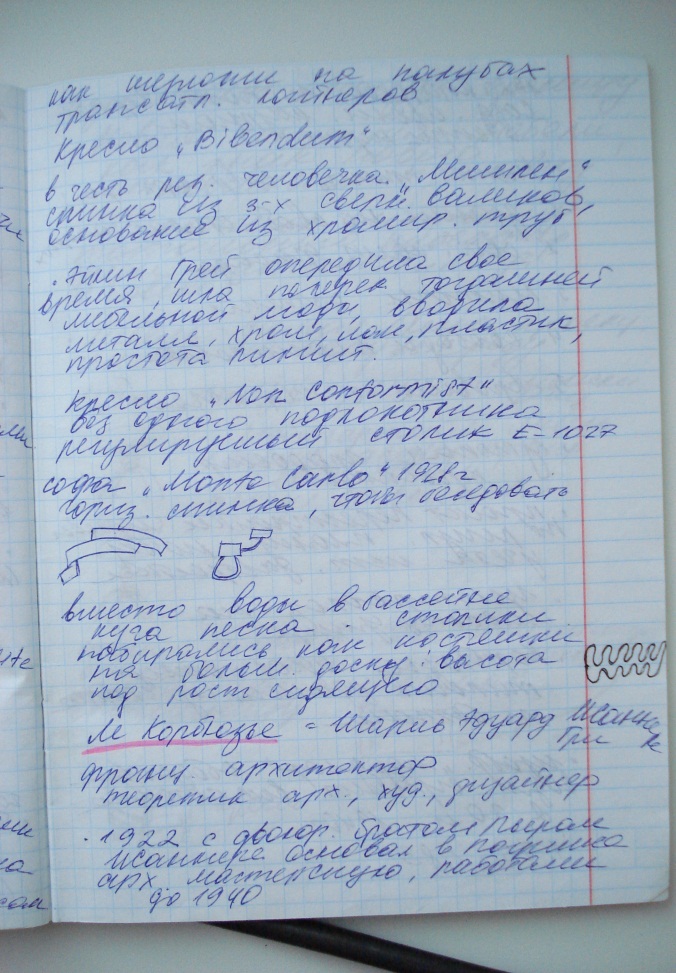 как шезлонги на палубах
трансатл. лайнеров
Кресло „Bibendum“
в честь рез. человечка „Мишлен“
спинка из 3-х сверн. валиков,
основание из хромир. труб
· Эйлин Грей опередила свое
время, шла поперек тогдашней
мебельной моды, вводила
металл, хром, лак, пластик,
простота линий.
Кресло „Non Conformist“
без одного подлокотника
регулируемый столик E-1027
софа „Monte Carlo“ 1928г
гориз. спинка, чтобы беседовать
вместо воды в бассейне
куча песка. столики
набирались как костяшки
на больш. доску: высота
под рост сидящего
Ле Корбюзье = Шарль Эдуард Жаннере
Гри
франц. архитектор
теоретик арх., худ., дизайнер
· 1922 с двоюр. братом Пьером
Жаннере основал в Париже
арх мастерскую, работали
до 1940